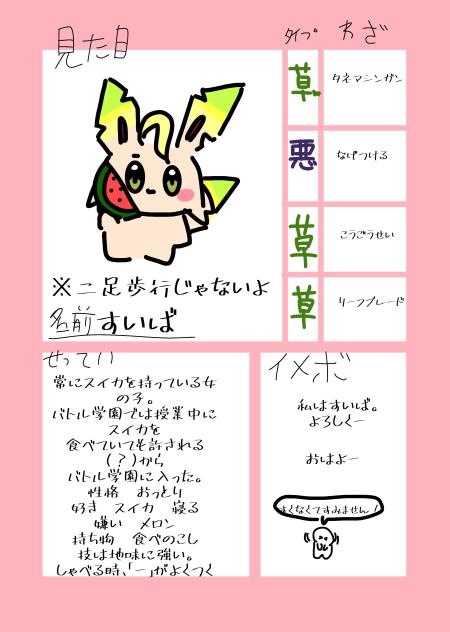 見た目
タイプ わざ
草 タネマシンガン
悪 なげつける
草 こうごうせい
草 リーフブレード
※二足歩行じゃないよ
名前 すいば
せってい
常にスイカを持っている女
の子。
バトル学園では授業中に
スイカを
食べていても許される
(?)から
バトル学園に入った。
性格 おっとり
好き スイカ 寝る
嫌い メロン
持ち物 食べのこし
技は地味に強い。
しゃべる時、「ー」がよくつく
イメボ
私はすいば。
よろしくー
おはよー
すくなくてすみません!